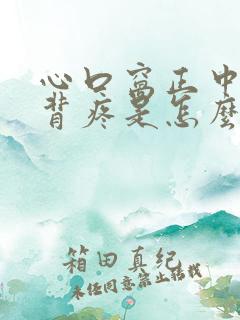 心口窩正中
背疼是怎麼
箱田真紀
未经同意禁止转载